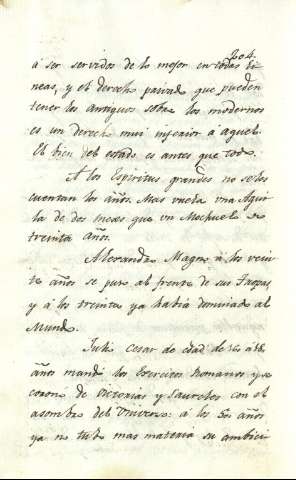 204.
á ser servidos de lo mejor en todas li-
neas, y el derecho parcial que pueden
tener los antiguos sobre los modernos
es un derecho mui inferior à aquel.
El bien del estado es antes que todo.
A los Espiritus grandes no se les
cuentan los años. Mas vuela una Agui-
la de dos meses que un Mochuelo de
treinta años.
Alexandro Magno à los vein-
te años se puso al frente de sus Tropas,
y à los treinta ya habia dominado al
Mundo.
Julio Cesar de edad de
años mandó los Exercitos Romanos y se
coronó de victorias y laureles con el
asombro del Universo: à los años
ya no tubo mas materia su ambici